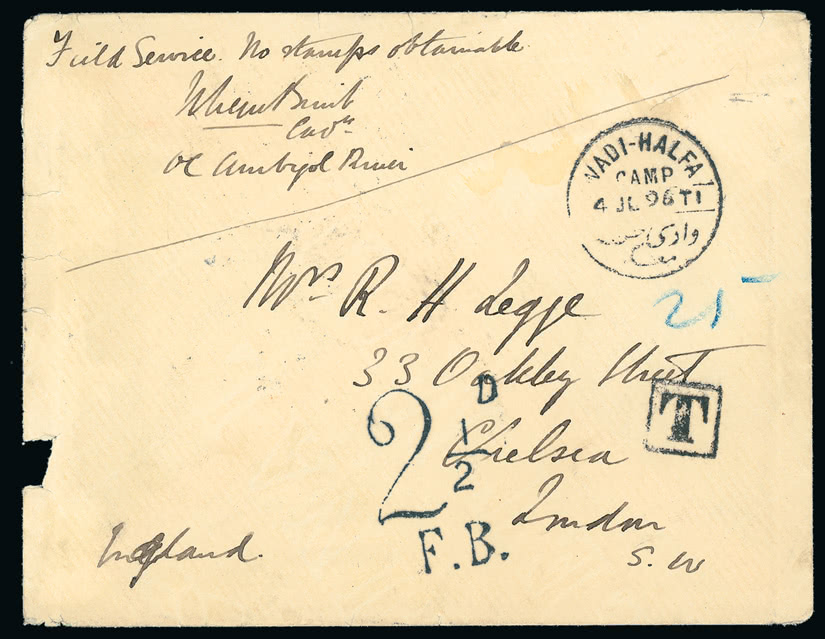 Field Service. No stamps obtainable
Capt
OC Ambigol
WADI-HALFA
CAMP
4 JL 96 T1
وادي حلفا
Mrs R. H Legge
25
33 Oakley Street
D
T
2 1/2
Chelsea
London
F.B.
England.
S. W